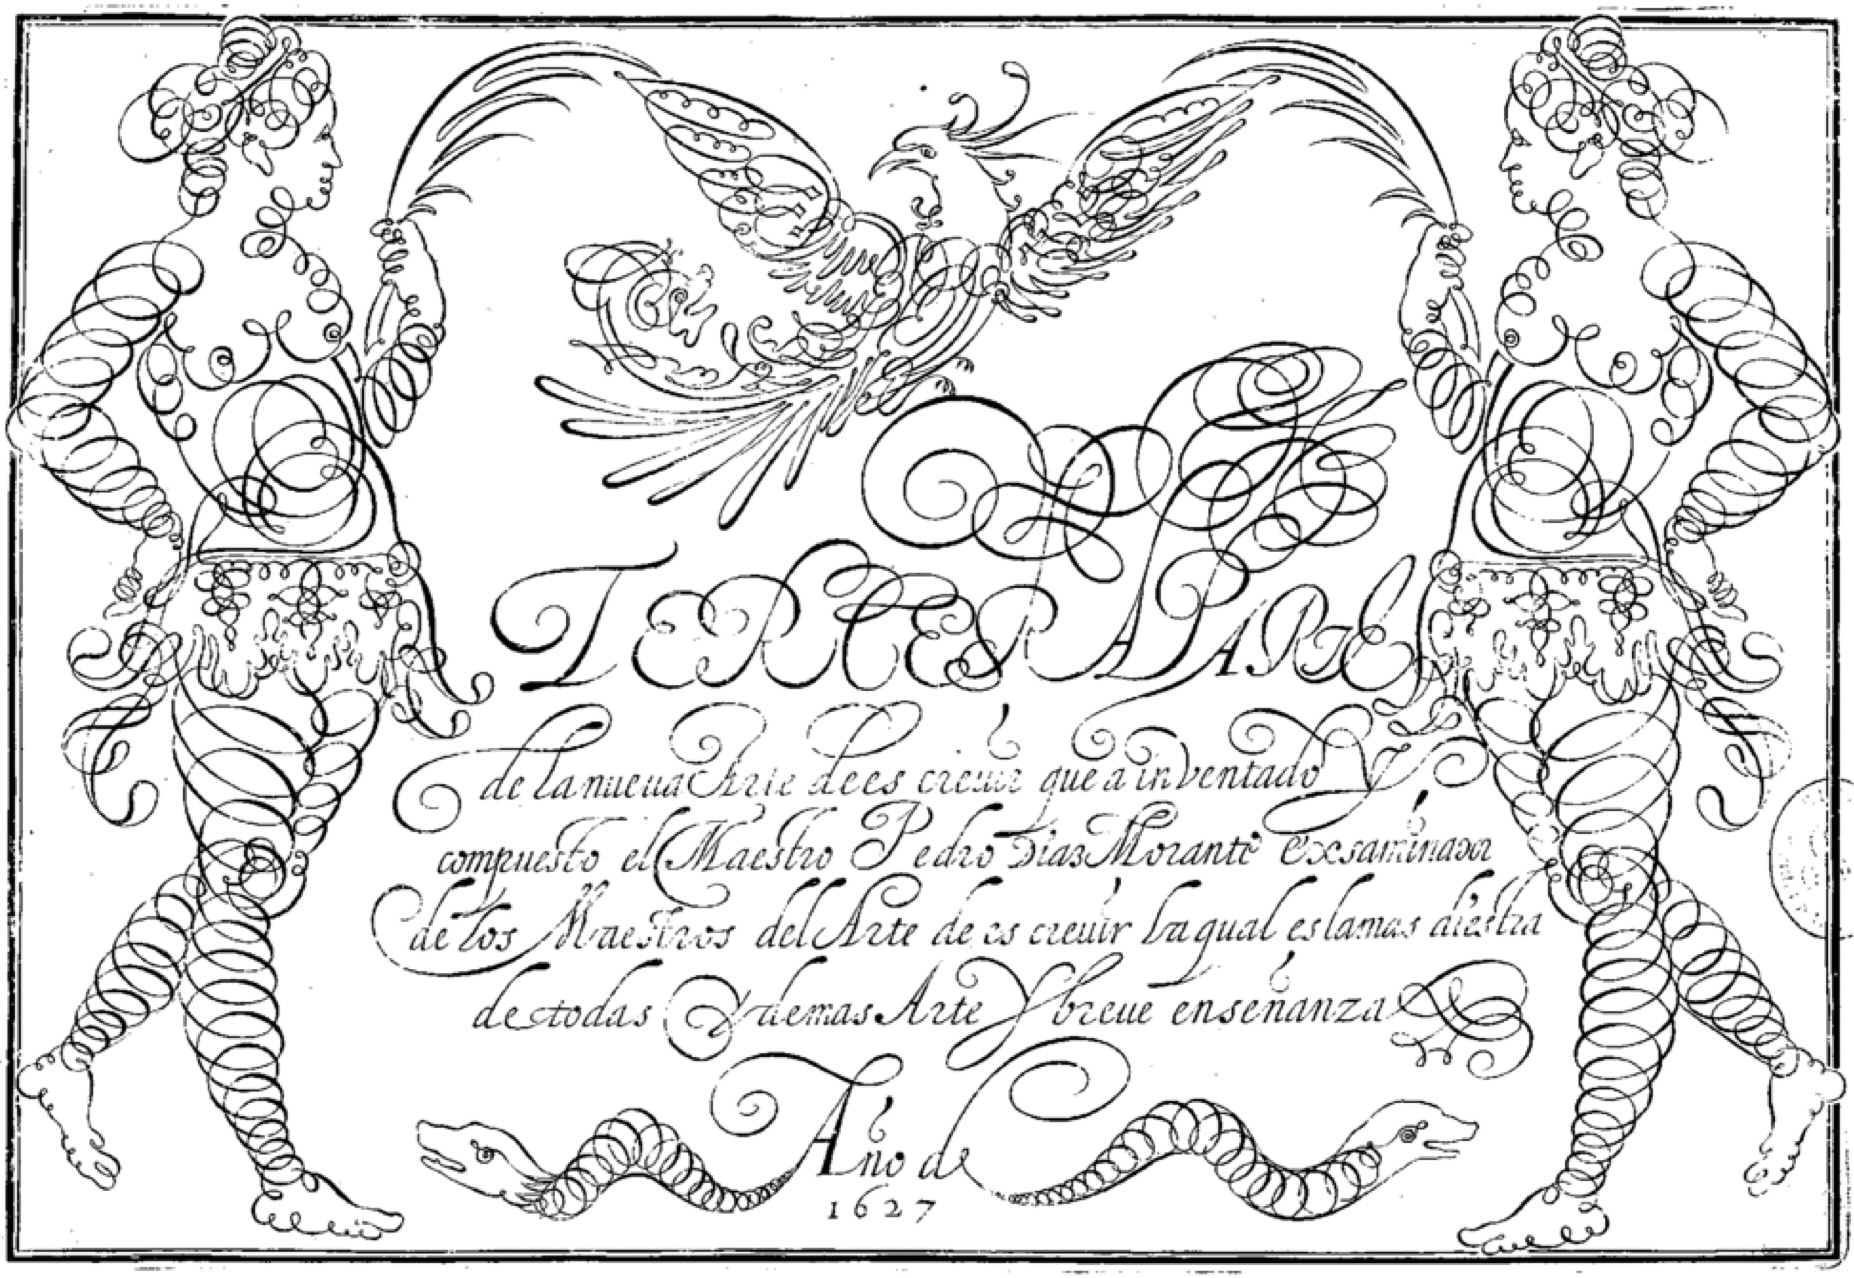 TERCERA PARTE
de la nueua Arte de es creuir que a inventado Y
compuesto el Maestro Pedro Diaz Morante exsaminador
de los Maestros del Arte de es creuir La qual es la mas diestra
de todas Y demas Arte Y breue enseñanza
Año de
1627